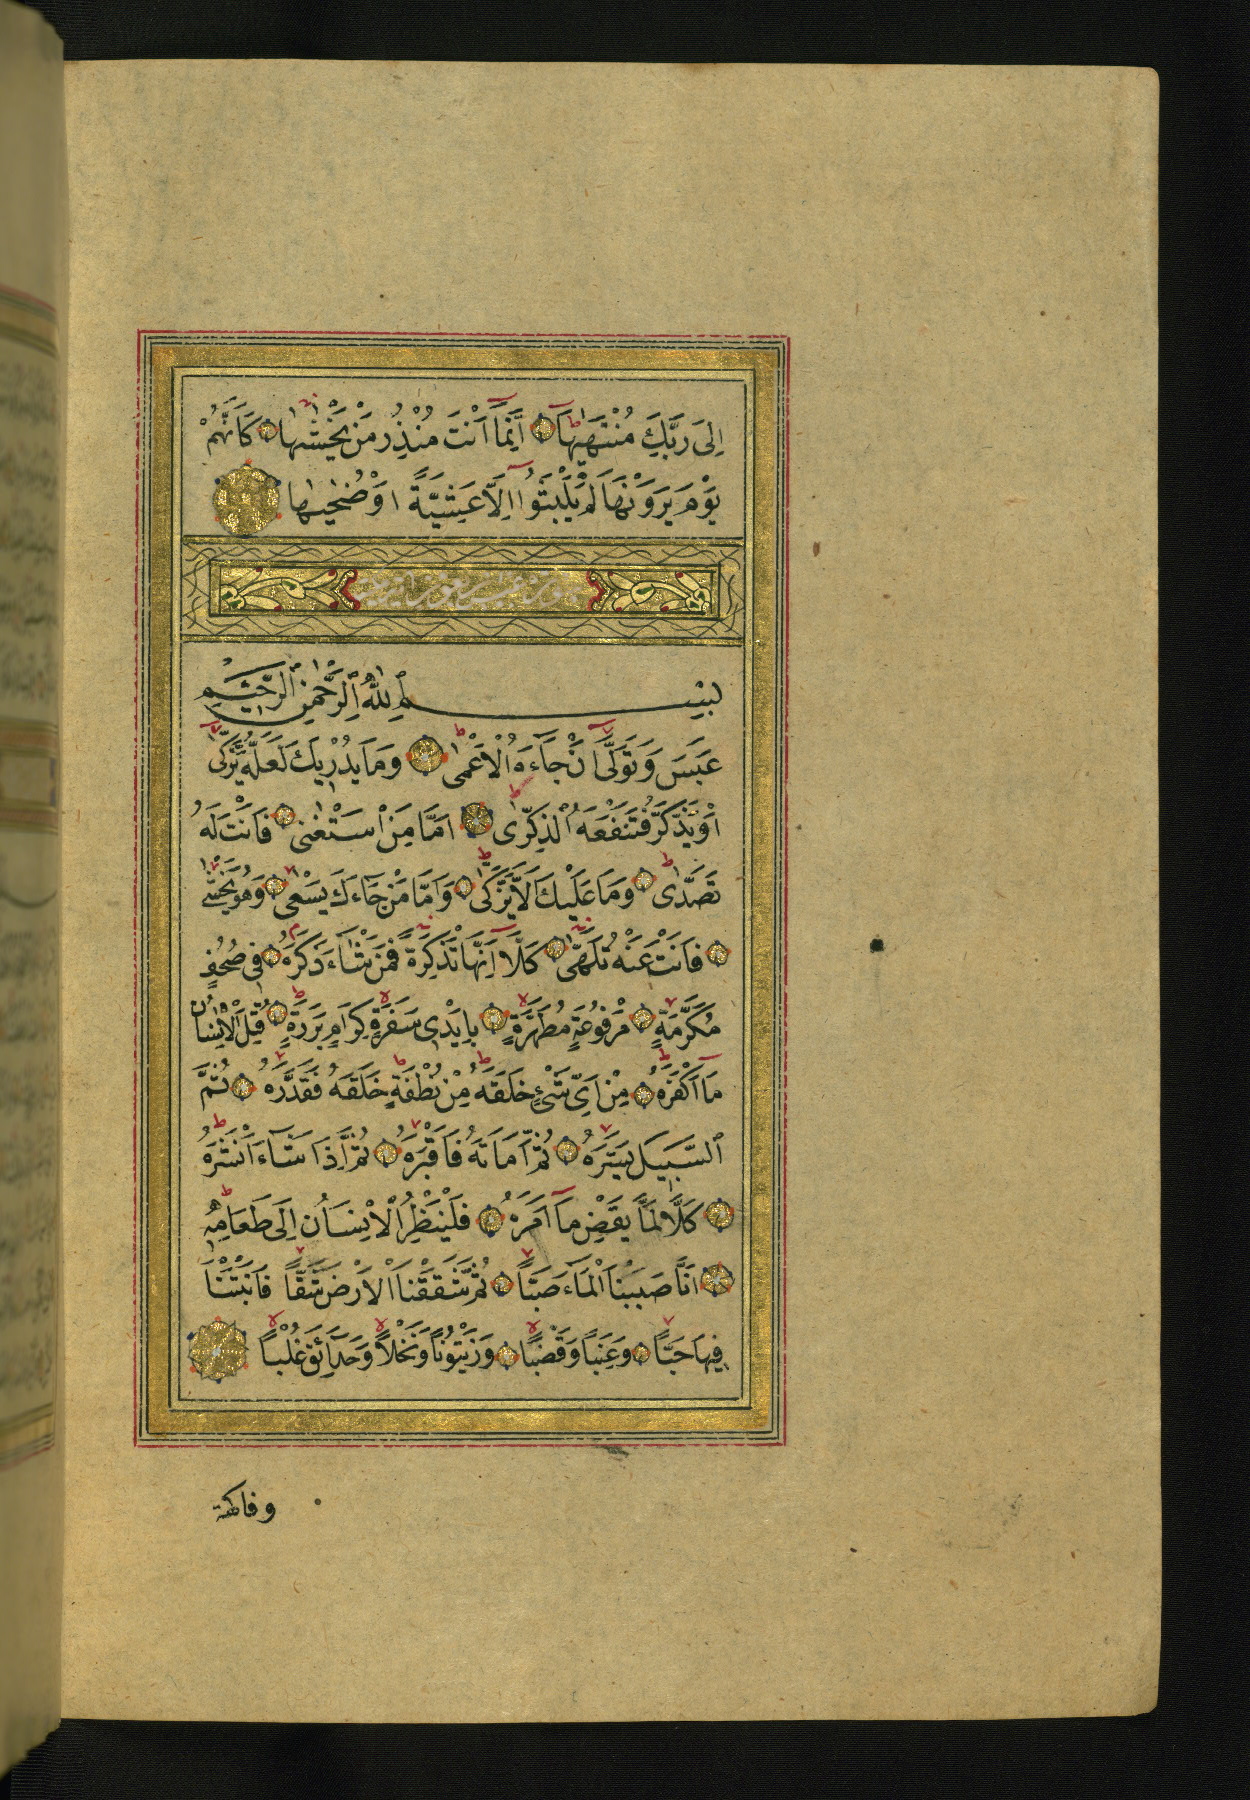 اِلىٰ رَبِّكَ مُنْتَهٰيهَا اِنَّمَا اَنْتَ مُنْذِرُ مَنْ يَخْشٰيهَا كَاَنَّهُمْ
يَوْمَ يَرَوْنَهَا لَمْ يَلْبَثُوا اِلَّا عَشِيَّةً اَوْ ضُحٰيهَا
بِسْمِ اللّٰهِ الرَّحْمٰنِ الرَّحِيمِ
عَبَسَ وَتَوَلّٰى اَنْ جَاءَهُ الْاَعْمٰى وَمَا يُدْرِيكَ لَعَلَّهُ يَزَّكّٰى
اَوْ يَذَّكَّرُ فَتَنْفَعَهُ الذِّكْرٰى اَمَّا مَنِ اسْتَغْنٰى فَاَنْتَ لَهُ
تَصَدّٰى وَمَا عَلَيْكَ اَلَّا يَزَّكّٰى وَاَمَّا مَنْ جَاءَكَ يَسْعٰى وَهُوَ يَخْشٰى
فَاَنْتَ عَنْهُ تَلَهّٰى كَلَّا اِنَّهَا تَذْكِرَةٌ فَمَنْ شَاءَ ذَكَرَهُ فِي صُحُفٍ
مُكَرَّمَةٍ مَرْفُوعَةٍ مُطَهَّرَةٍ بِاَيْدِي سَفَرَةٍ كِرَامٍ بَرَرَةٍ قُتِلَ الْاِنْسَانُ
مَا اَكْفَرَهُ مِنْ اَيِّ شَيْءٍ خَلَقَهُ مِنْ نُطْفَةٍ خَلَقَهُ فَقَدَّرَهُ ثُمَّ
السَّبِيلَ يَسَّرَهُ ثُمَّ اَمَاتَهُ فَاَقْبَرَهُ ثُمَّ اِذَا شَاءَ اَنْشَرَهُ
كَلَّا لَمَّا يَقْضِ مَا اَمَرَهُ فَلْيَنْظُرِ الْاِنْسَانُ اِلىٰ طَعَامِهِ
اَنَّا صَبَبْنَا الْمَاءَ صَبًّا ثُمَّ شَقَقْنَا الْاَرْضَ شَقًّا فَاَنْبَتْنَا
فِيهَا حَبًّا وَعِنَبًا وَقَضْبًا وَزَيْتُونًا وَنَخْلًا وَحَدَائِقَ غُلْبًا
وفاكهة